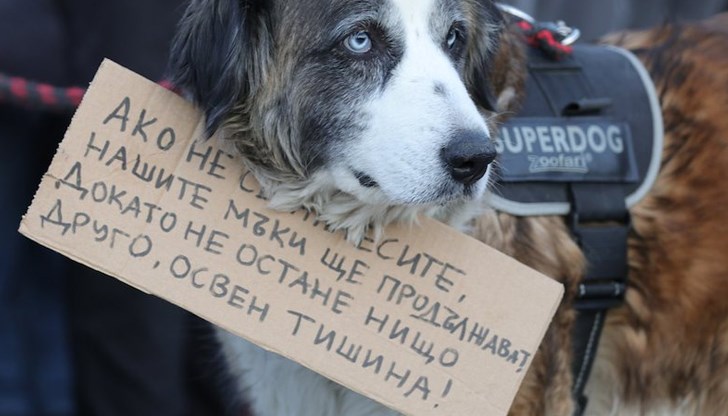 АКО НЕ С ЕСИТЕ,
НАШИТЕ МЪКИ ЩЕ ПРОДЪЛЖАВАТ
ДОКАТО НЕ ОСТАНЕ НИЩО
ДРУГО, ОСВЕН ТИШИНА!
SUPERDOG
Zoofari®